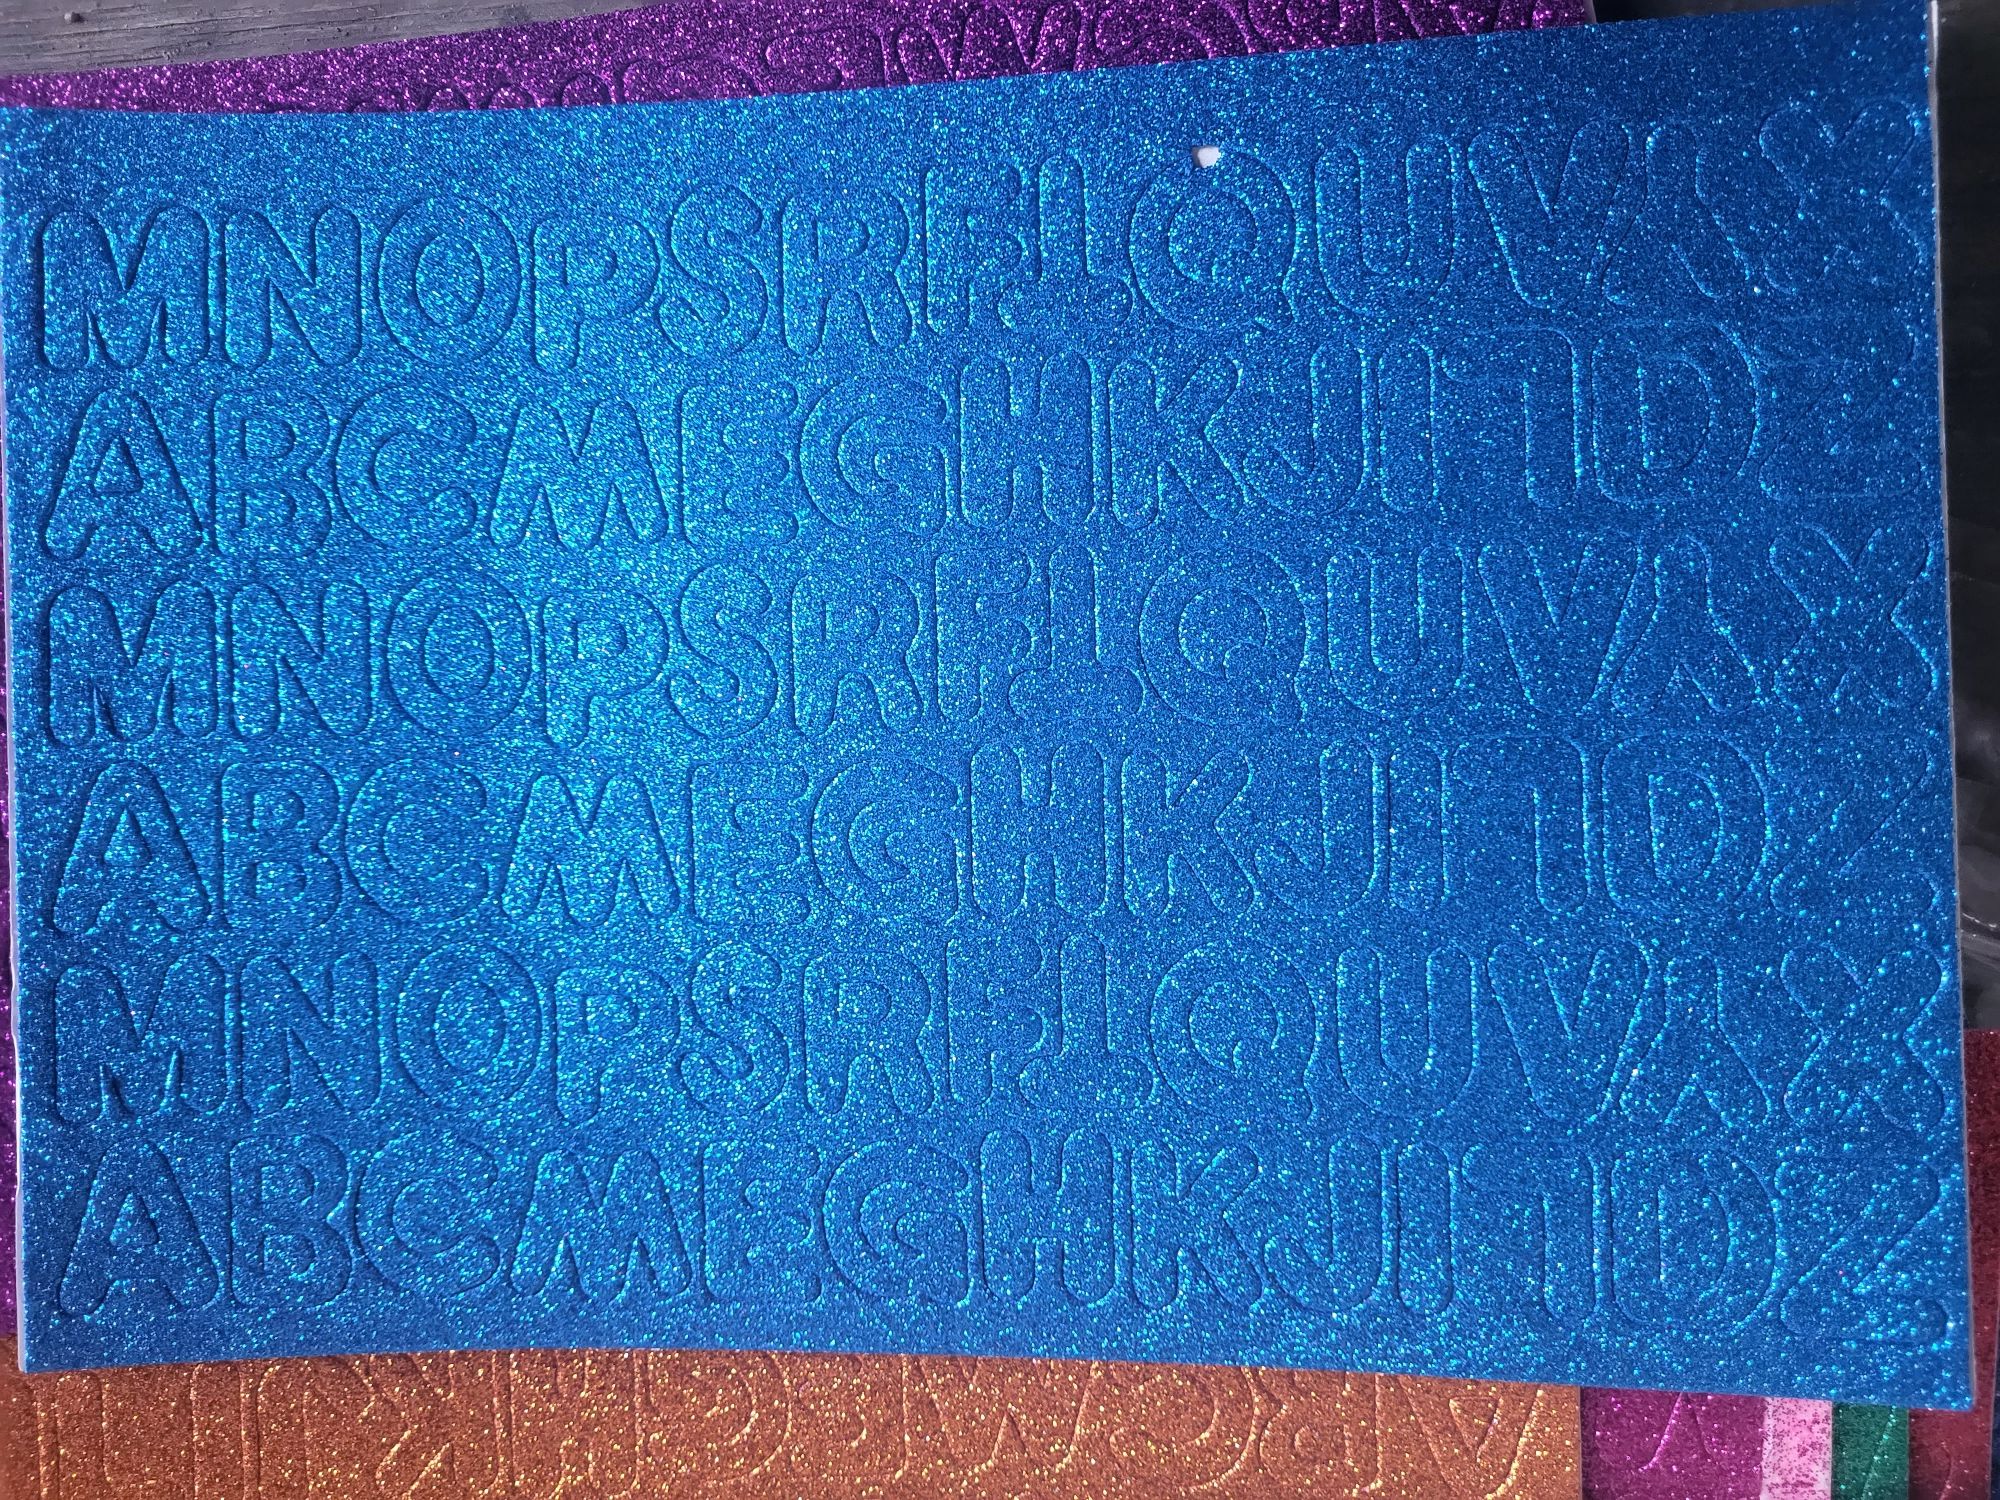 MNOPSRFTQUVYX
ABCWEGHKJILDZ
MNOPSRFTQUVYX
ABCWEGHKJILDZ
MNOPSRFTQUVYX
ABCWEGHKJILDZ